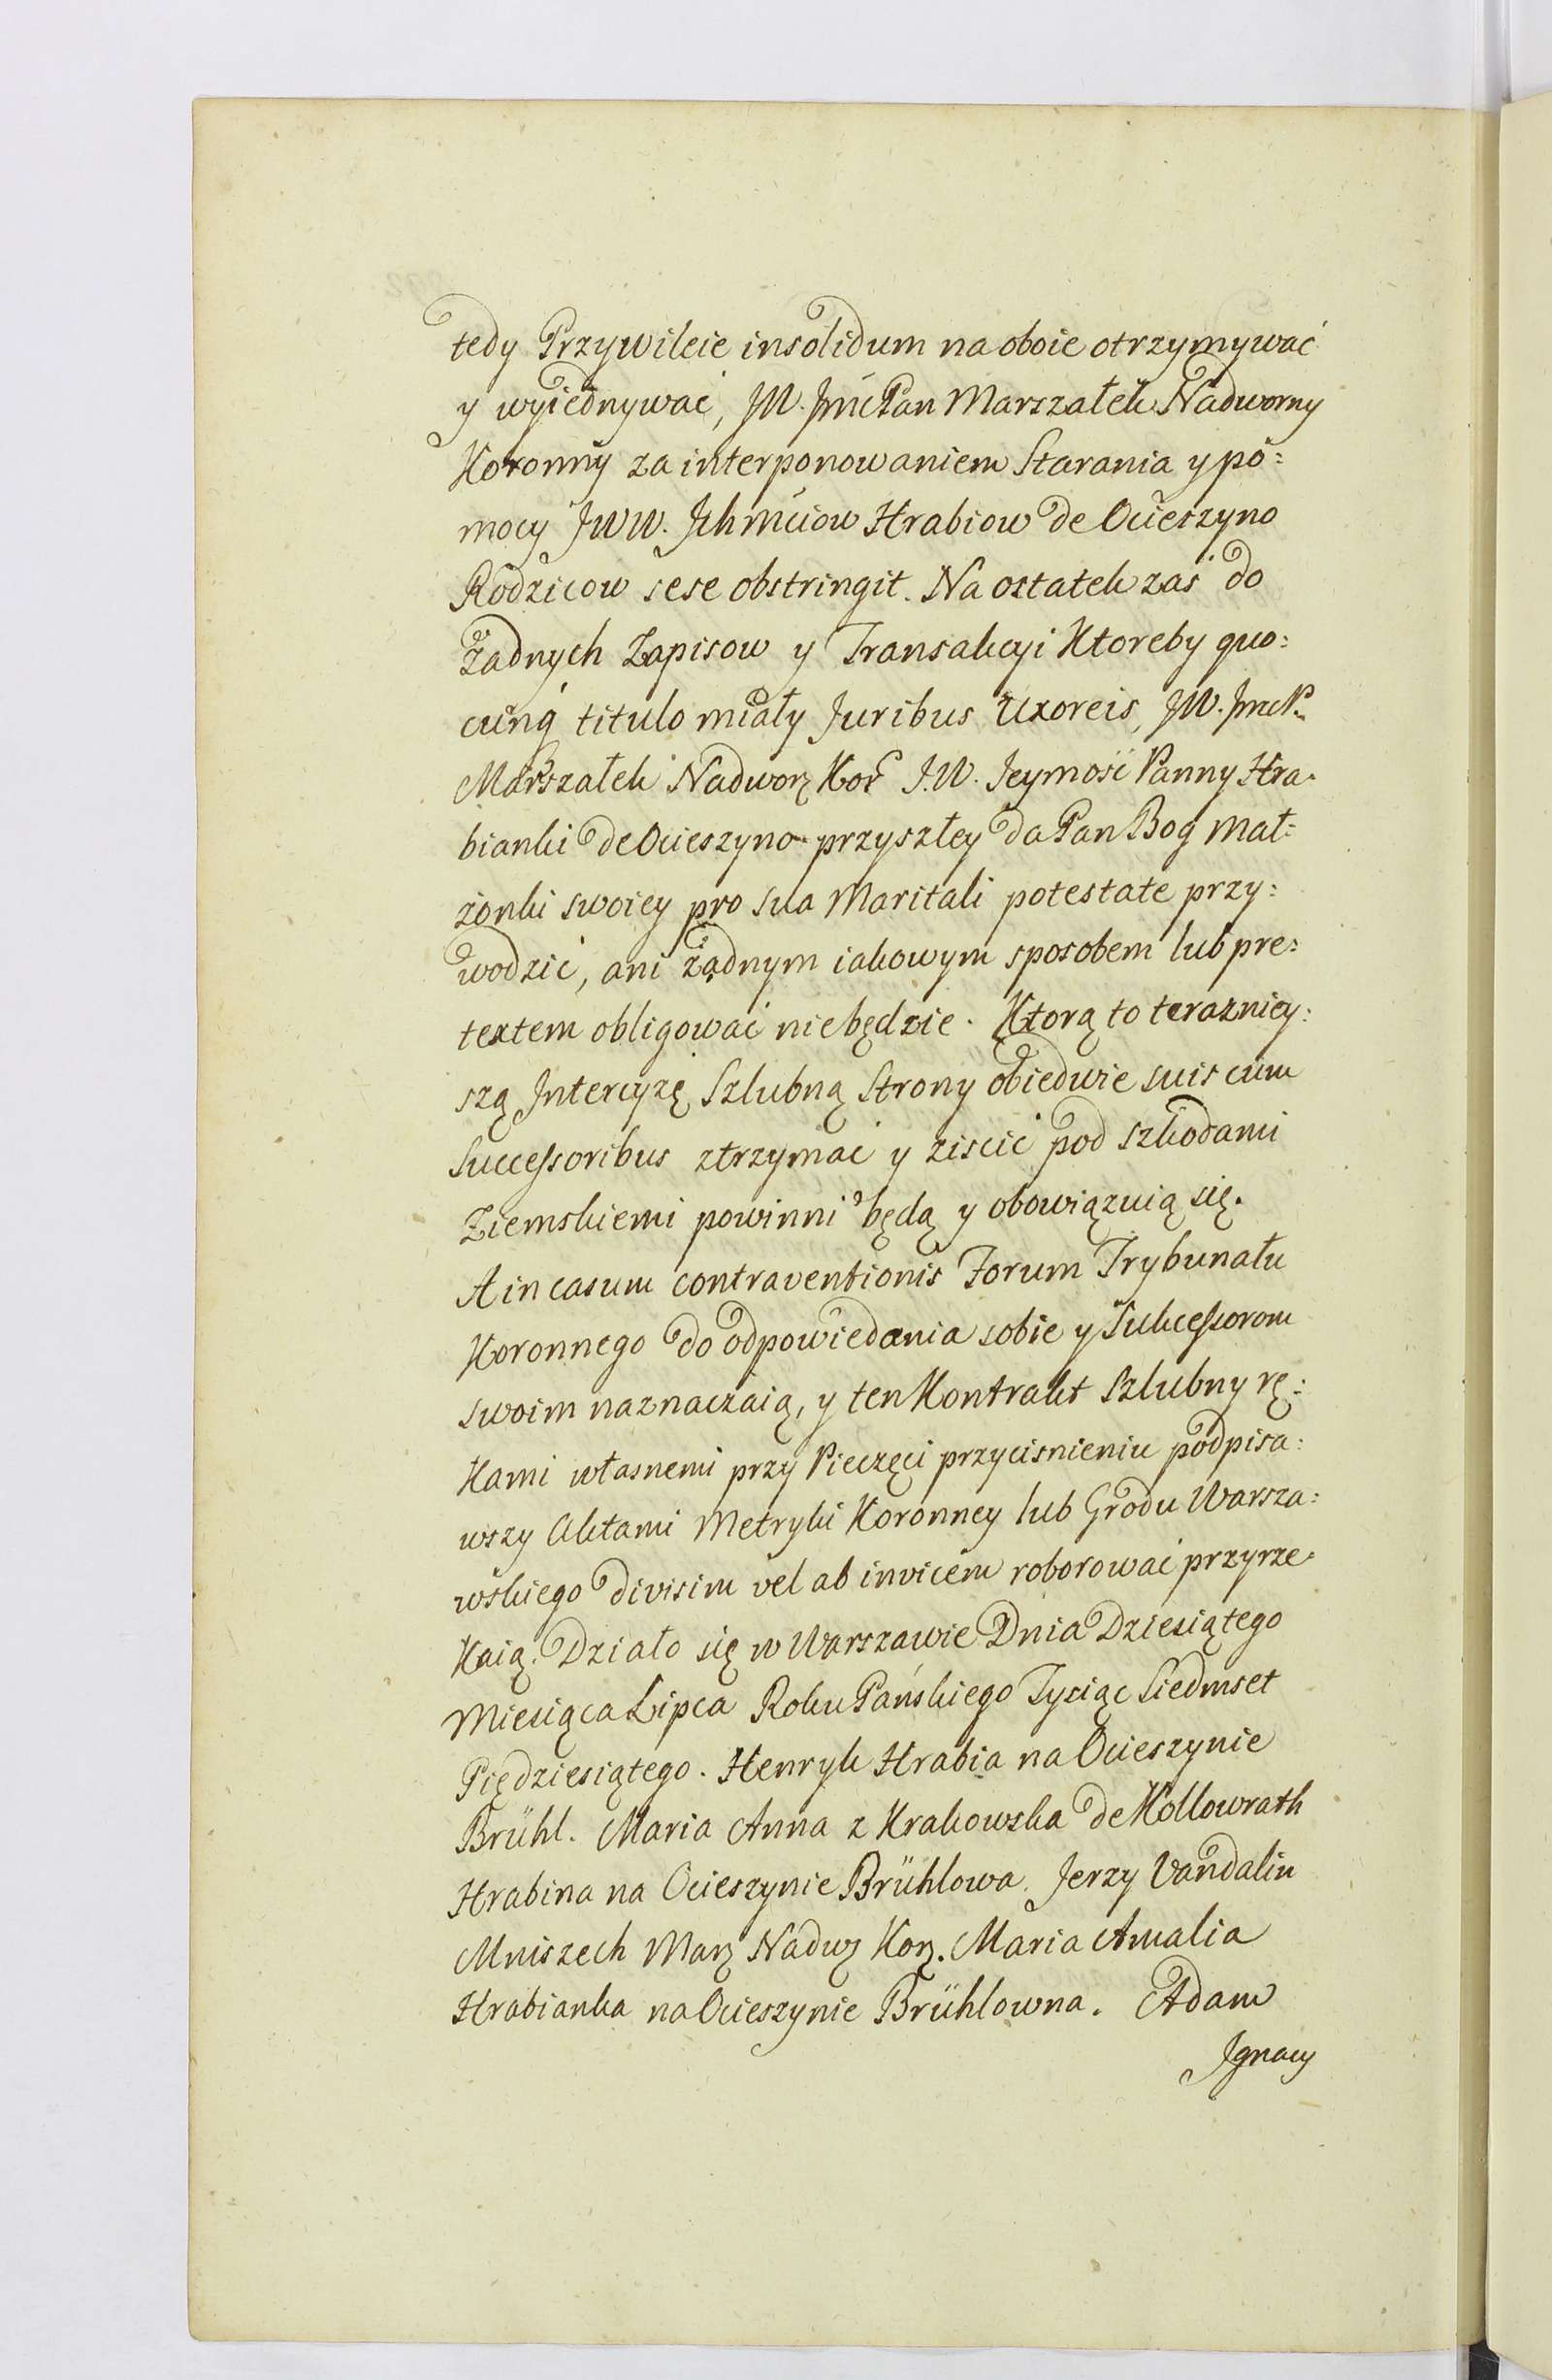 tedy Przywileie insolidum na oboie otrzymywać
y wyiednywać, JW. Jmć Pan Marszałek Nadworny
Koronny za interponowaniem Starania y po=
mocy JWW. Jchmciow Hrabiow de Ocieszyno
Rodzicow sese obstringit. Na ostatek zaś do
żadnych Zapisow y Transakcyi Ktoreby quo=
cunq titulo miały Juribus Uxoreis, JW. Jmć P.
Marszałek Nadworz Kor. J.W. Jeymość Panny Hra=
bianki de Ocieszyno przyszłey da Pan Bog mał=
żonki swoiey pro sua Maritali potestate przy=
wodzić, ani żadnym iakowym sposobem lub pre=
textem obligować niebędzie. Ktorą to terazniey=
szą Intercyzę Szlubną Strony obiedwie suis cum
Successoribus ztrzymać y ziscić pod szkodami
Ziemskiemi powinni będą y obowiązuią się.
A in casum contraventionis Forum Trybunału
Koronnego do odpowiedania sobie y Sukcessorom
swoim naznaczaią, y ten Kontrakt Szlubny rę=
Kami własnemi przy Pieczęci przycisnieniu podpisa=
wszy Aktami Metryki Koronney lub Grodu Warsza=
wskiego divisim vel ab invicem roborować przyrze=
Kaią. Działo się w Warszawie Dnia Dziesiątego
Miesiąca Lipca Roku Pańskiego Tysiąc Siedmset
Piędziesiątego. Henryk Hrabia na Ocieszynie
Brühl. Maria Anna z Krakowska de Kollowrath
Hrabina na Ocieszynie Brühlowa. Jerzy Vandalin
Mniszech Marz Nadwz Korz. Maria Amalia
Hrabianka na Ocieszynie Brühlowna. Adam
Jgnacy